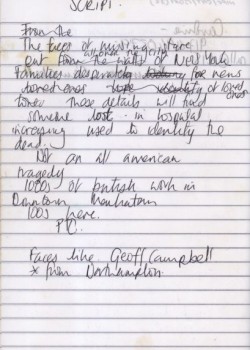 SCRIPT
From the
The faces of missing stare
out from the walls of New York
Families desperately for news
loved ones identity of loved ones
those details will hold
someone lost in hospital
increasing used to identify the
dead.
Not an all american
tragedy
1000s of british work in
Downtown Manhattan
100s here.
Faces like Geoff Campbell
* from Northampton